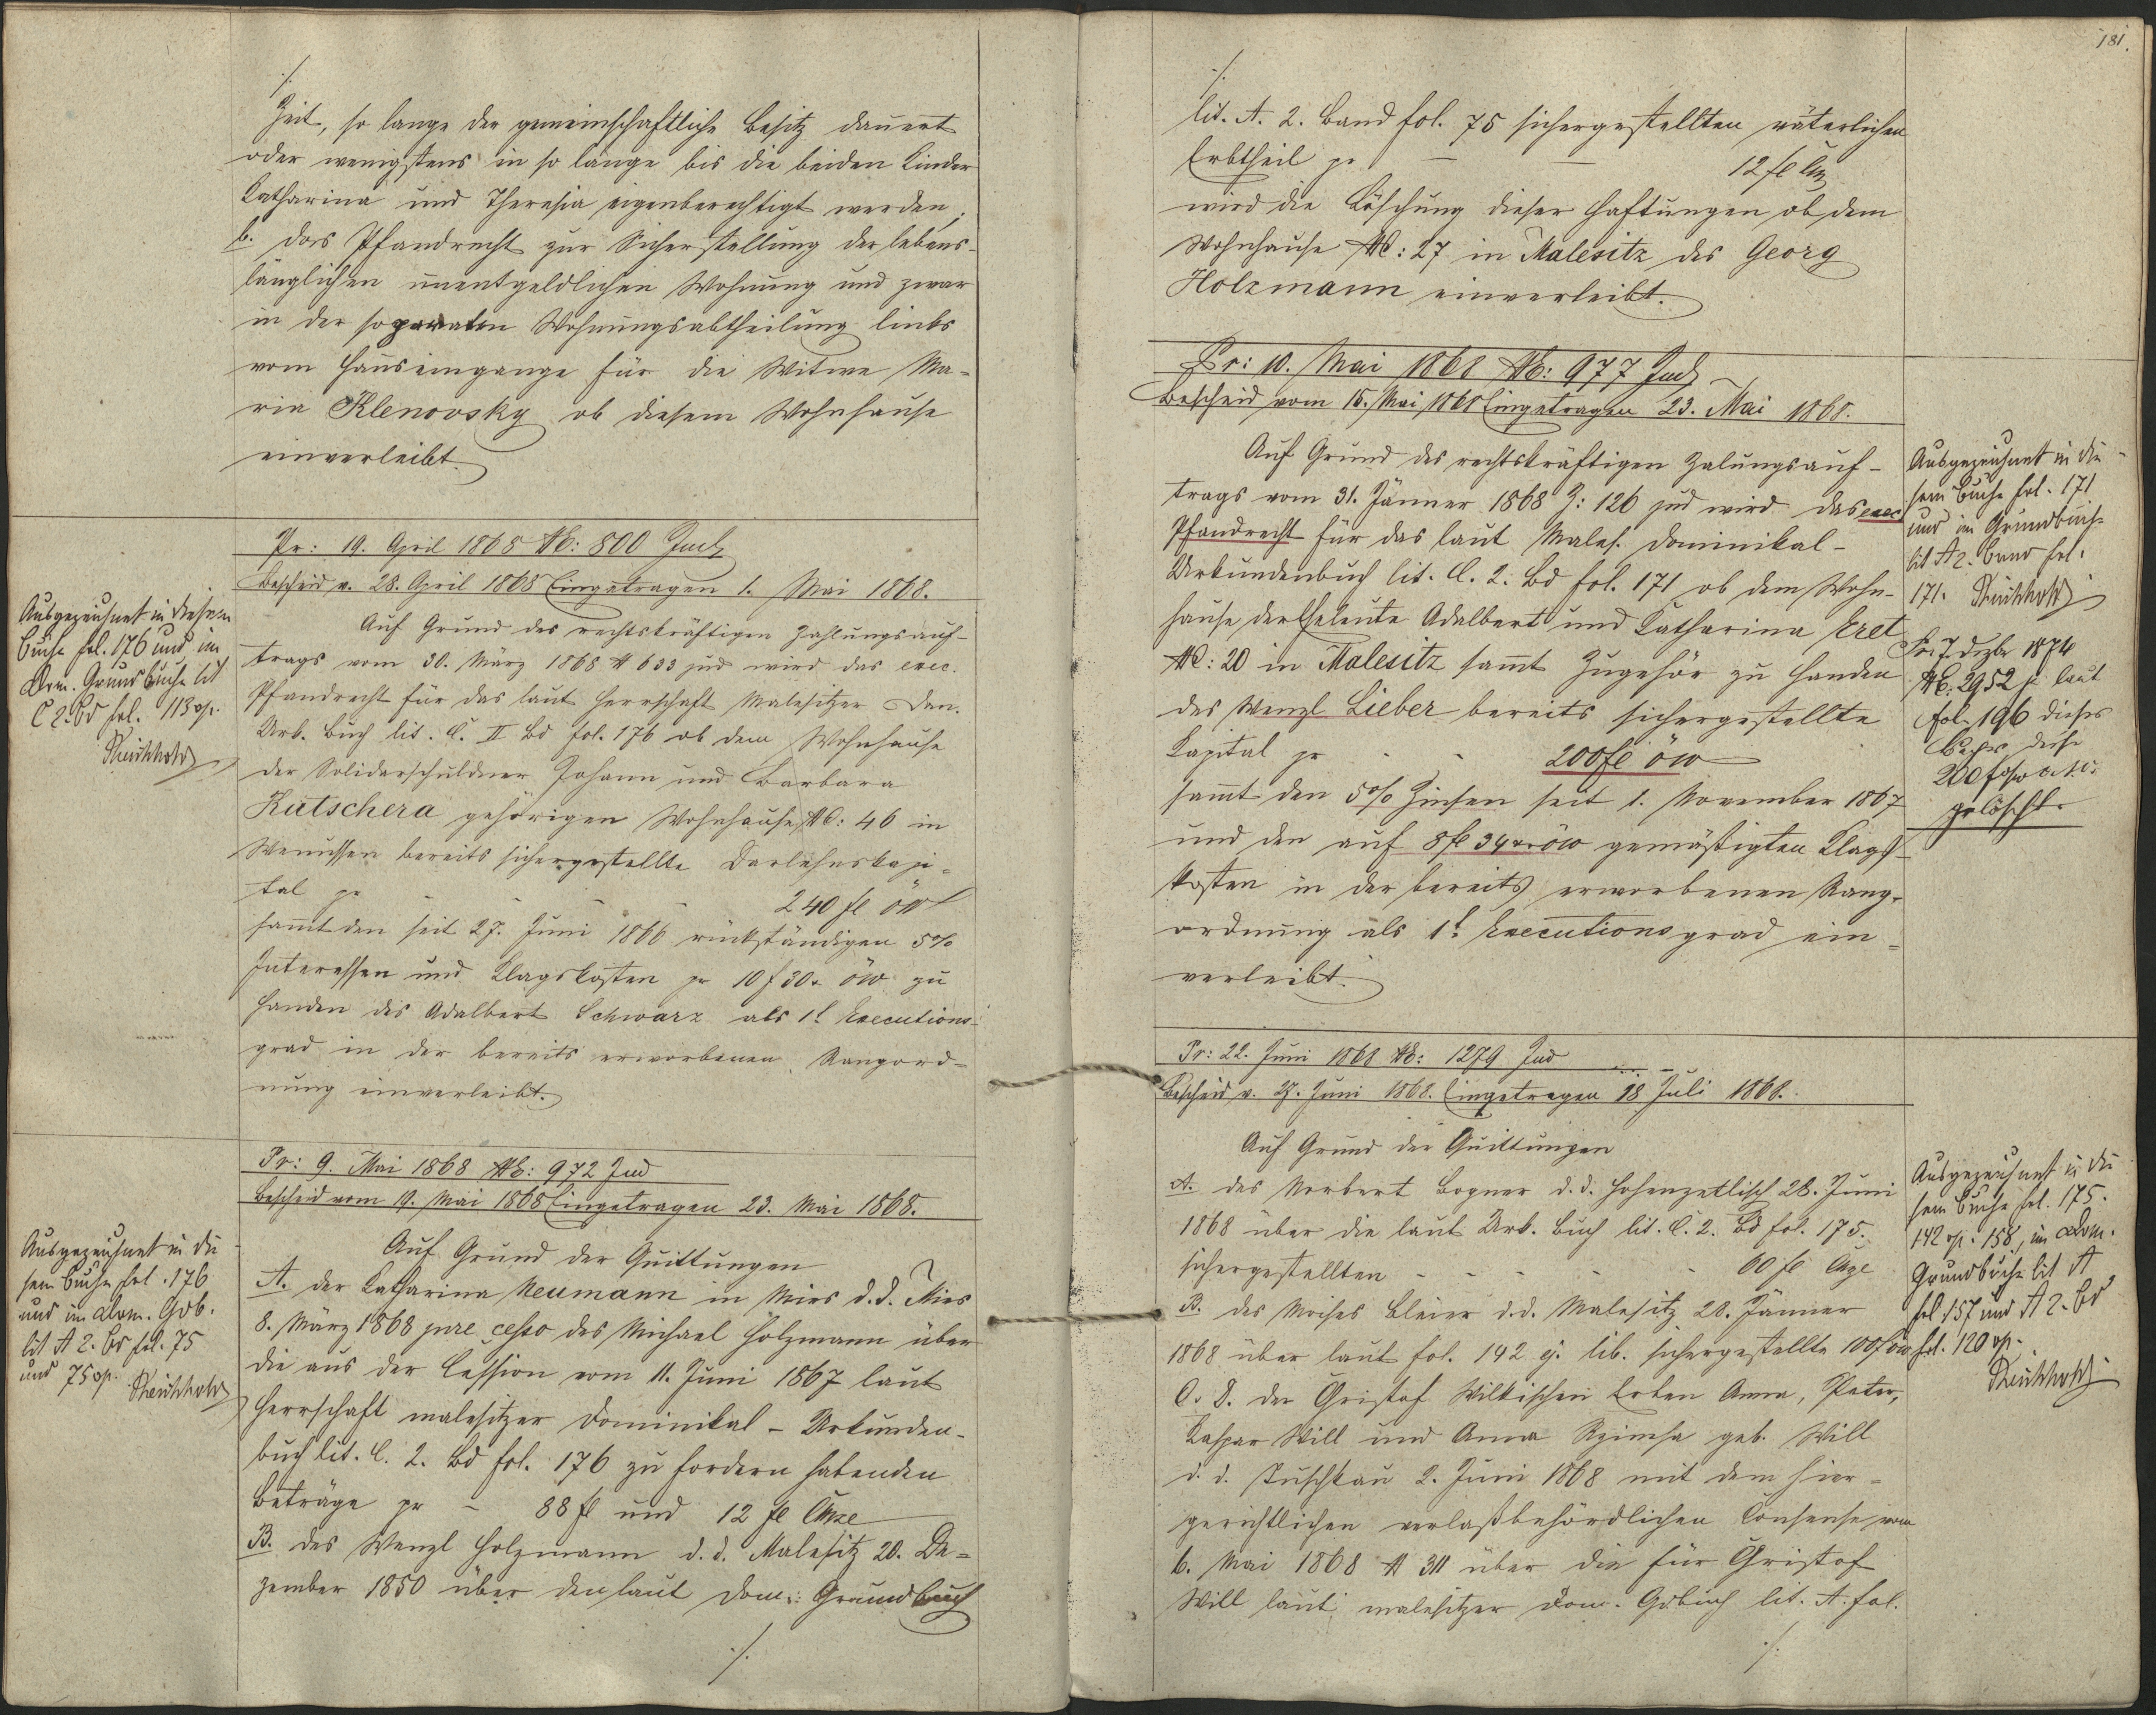 ./.
Zeit, so lange der gemeinschaftliche Besitz dauert
oder wenigstens in so lange bis die beiden Kinder
Katharina und Theresia eigenberechtigt werden,
b. das Pfandrecht zur Sicherstellung der lebens-
länglichen unentgeldlichen Wohnung und zwar
in der separaten Wohnungsabtheilung links
vom Hauseingange für die Witwe Ma-
ria Klenovsky ob diesem Wohnhause
einverleibt.
Pr: 19. April 1868 NE: 800 Jud
Bescheid v. 28. April 1868 Eingetragen 1. Mai 1868.
Ausgezeichnet in diesem
Buche fol. 176 und im
Dom. Grundbuche lit
C 2. Bd fol. 113 vp.
Auf Grund des rechtskräftigen Zahlungsauf-
trags vom 30. März 1868 N 633 jud wird das exec.
Pfandrecht für das laut Herrschaft Malesitzer Dom.
Urk. Buch lit. C. II Bd fol. 176 ob dem Wohnhause
der Solidarschuldner Johann und Barbara
Kutschera gehörigen Wohnhause NC: 46 in
Wenussen bereits sichergestellte Darlehnskapi-
tal pr - - - 240 fl öW
sammt den seit 27. Juni 1866 rückständigen 5%
Interessen und Klagskosten pr 10 f 30 x öW zu
Handen des Adalbert Schwarz als 1t Executions-
grad in der bereits erworbenen Rangord-
nung einverleibt.
Pr: 9. Mai 1868 NE: 972 Jud
Bescheid vom 19. Mai 1868 Eingetragen 23. Mai 1868.
Ausgezeichnet in die-
sem Buche fol. 176
und im Dom. Gdb.
lit A 2. Bd fol. 75
und 75 vp.
Auf Grund der Quittungen
A. der Katharina Neumann in Mies d. d. Mies
8. März 1868 jure cesso des Michael Holzmann über
die aus der Cession vom 11. Juni 1867 laut
Herrschaft malesitzer Dominikal-Urkunden-
buch lit. C. 2. Bd fol. 176 zu fordern habenden
Beträge pr - 88 fl und 12 fl CMze
B. des Wenzl Holzmann d. d. Malesitz 20. De-
zember 1850 über den laut Dom: Grundbuch
./.
181.
./.
lit. A. 2. Band fol. 75 sichergestellten väterlichen
Erbtheil pr - - 12 fl CMz
wird die Löschung dieser Haftungen ob dem
Wohnhause NC: 27 in Malesitz des Georg
Holzmann einverleibt.
Pr: 10. Mai 1868 NE: 977 Jud
Bescheid vom 15. Mai 1868 Eingetragen 23. Mai 1868.
Auf Grund des rechtskräftigen Zalungsauf-
trags vom 31. Jänner 1868 Z: 126 jud wird das exec
Pfandrecht für das laut Males. Dominikal-
Urkundenbuch lit. C. 2. Bd fol. 171 ob dem Wohn-
hause der Eheleute Adalbert und Katharina Eret
NC: 20 in Malesitz sammt Zugehör zu Handen
des Wenzl Lieber bereits sichergestellte
Kapital pr - - 200 fl öW
sammt den 5% Zinsen seit 1. November 1867
und den auf 8 fl 34 xr öW gemäßigten Klags-
kosten in der bereits erworbenen Rang-
ordnung als 1t Executionsgrad ein-
verleibt.
Ausgezeichnet in die-
sem Buche fol. 171
und im Grundbuche
lit A 2. Band fol.
171.
Pr. 7 Dezbr 1874
NE: 2952 j. laut
fol. 196 dieses
Buches diese
200 f öW c. s. c.
gelöscht.
Pr: 22. Juni 1868 NE: 1279 Jud
Bescheid v. 27. Juni 1868. Eingetragen 18 Juli 1868.
Auf Grund der Quittungen
A. des Norbert Bogner d. d. Hohenzetlisch 28. Juni
1868 über die laut Urk. Buch lit. C. 2. Bd fol. 175.
sichergestellten - - - - 60 fl CMze
B. des Moises Bleier d. d. Malesitz 28. Jänner
1868 über laut fol. 142 ej. lib. sichergestellte 100 f öW
C. d. der Gristof Willischen Erben Anna, Peter,
Kaspar Will und Anna Rzimsa geb. Will
d. d. Tuschkau 2. Juni 1868 mit dem hier-
gerichtlichen verlaßbehördlichen Consense vom
6. Mai 1868 N 311 über die für Gristof
Will laut malesitzer Dom. Gdbuch lit. A. fol.
./.
Ausgezeichnet in die-
sem Buche fol. 175.
142 vp. 158, im Dom.
Grundbuche lit A
fol 157 und A 2. Bd
fol. 120 vp.